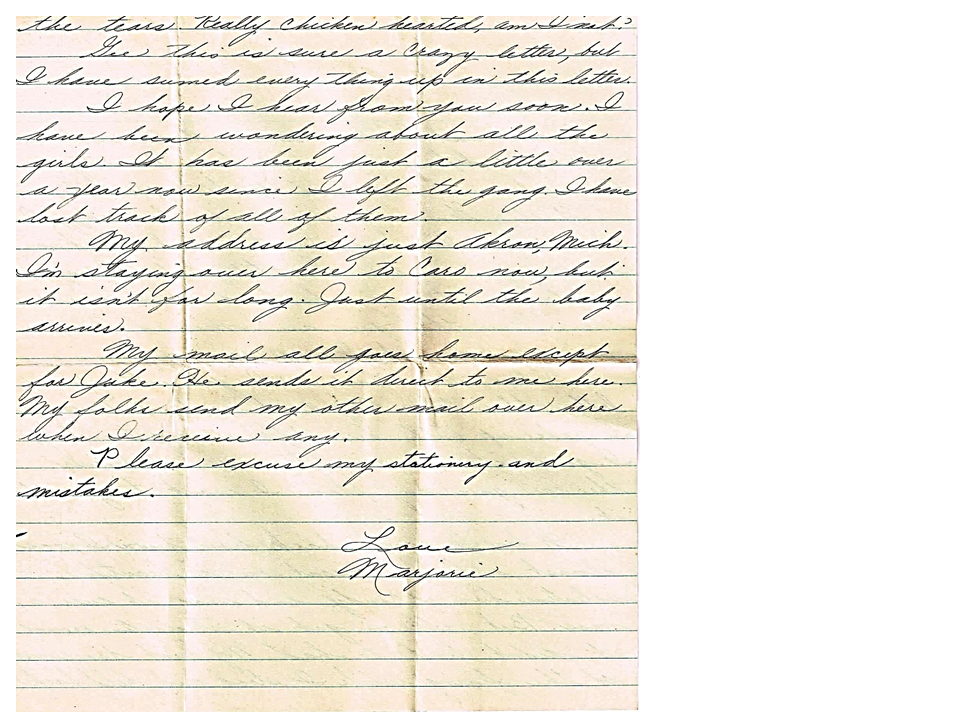 the tears. Really chicken hearted, am I inst?
Gee this is sure a crazy letter, but
I have sumed every thing up in this letter.
I hope I hear from you soon. I
have been wondering about all the
girls. It has been just a little over
a year now since I left the gang. I have
lost track of all of them.
My address is just Akron, Mich.
I'm staying over here to Caro now, but
it isn't for long. Just until the baby
arrives.
My mail all goes home except
for Jake. He sends it direct to me here.
My folks send my other mail over here
when I receive any.
Please excuse my stationery and
mistakes.
Love
Marjorie